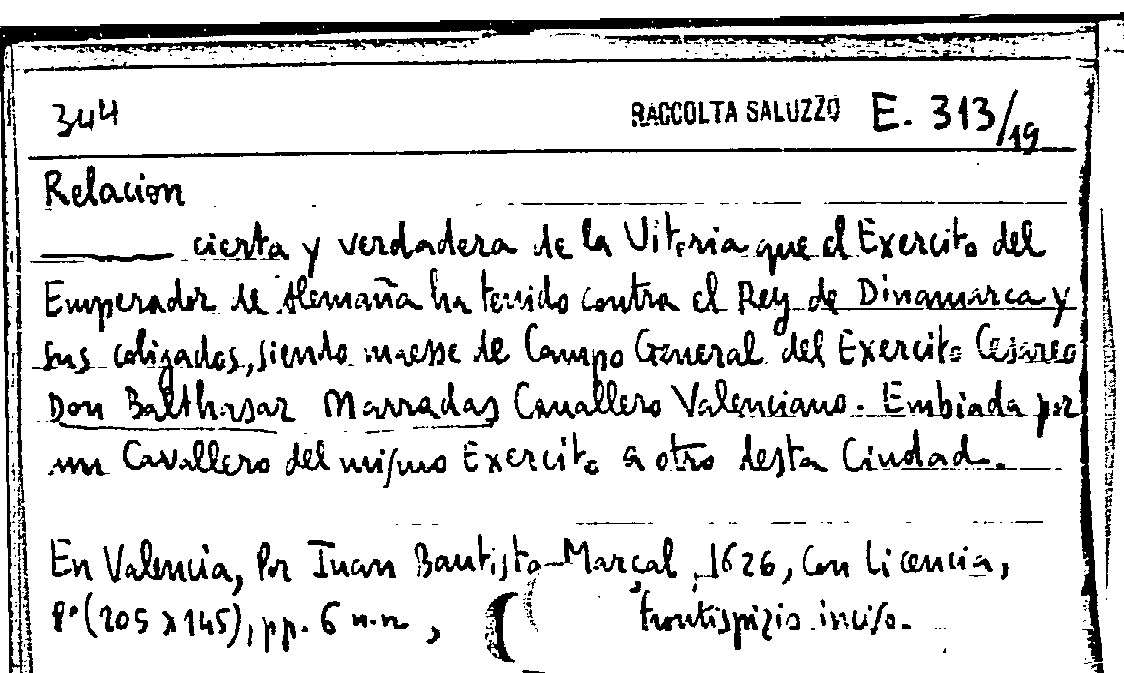 344 RACCOLTA SALUZZO E. 313/19
Relacion
cierta y verdadera de la Vitoria que el Exercito del
Emperador de Alemaña ha tenido contra el Rey de Dinamarca y
sus coligados, siendo maesse de Campo General del Exercito Cesareo
Don Balthasar Marradas Cauallero Valenciano. Embiada por
un Cavallero del mismo Exercito a otro desta Ciudad.
En Valencia, Por Iuan Bautista Marçal, 1626, Con Licencia,
8° (205 x 145), pp. 6 n.n, frontispizio inciso.